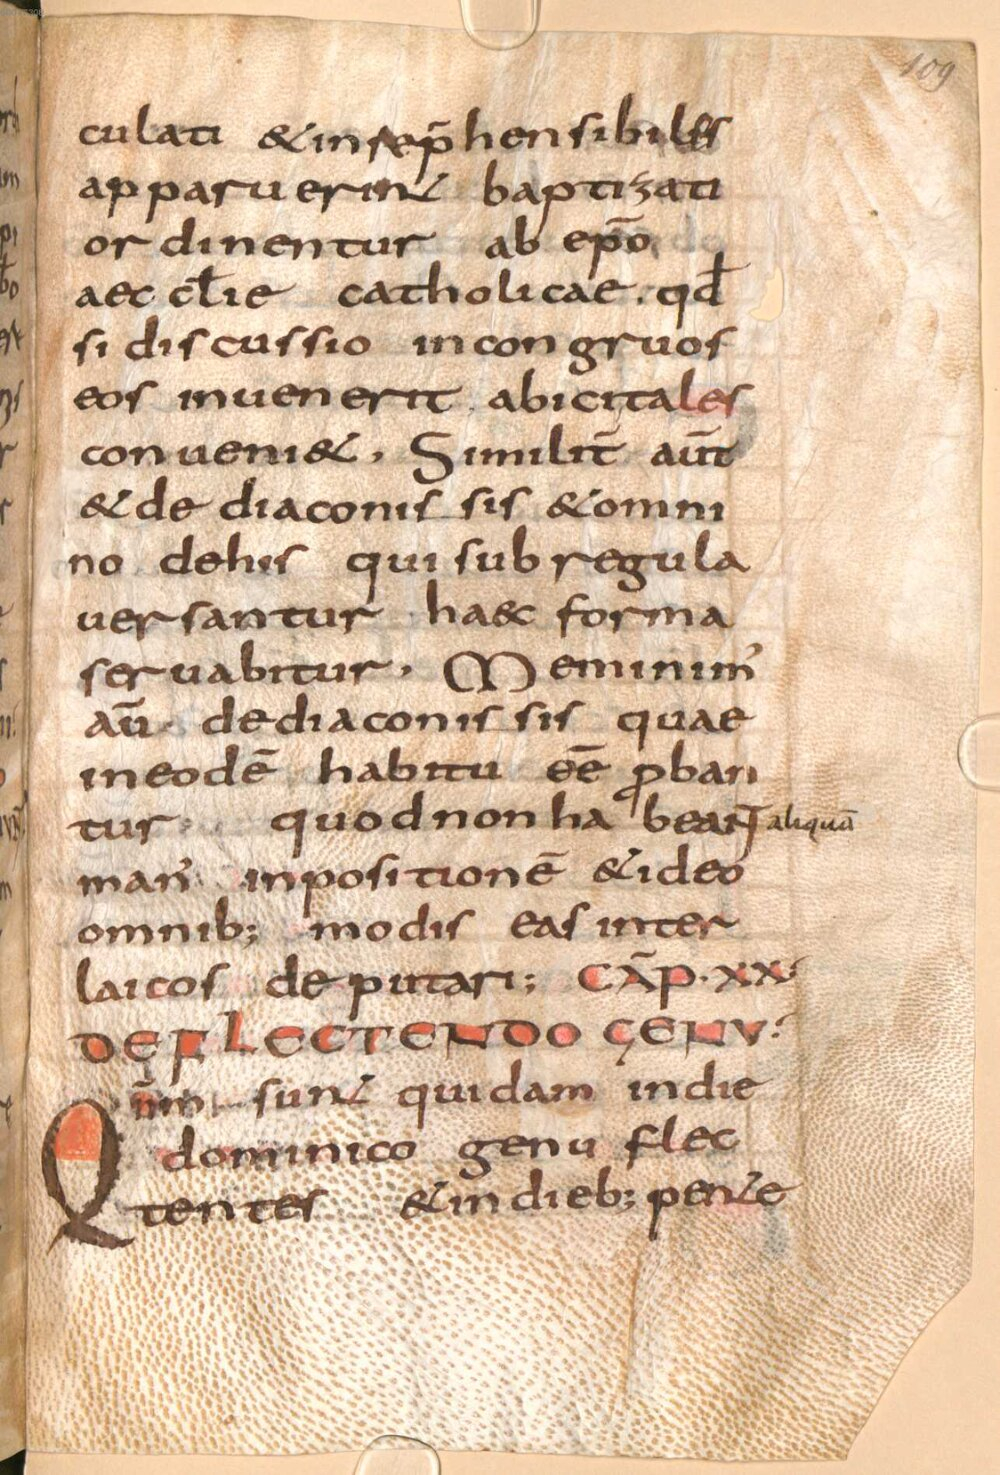 109
culati & inrep̄hensibiles
apparuerint baptizati
ordinentur ab ep̄o
aecclie catholicae. qđ
si discussio incongruos
eos inuenerit abici tales
conueni&. Similit̄ aut̄
& de diaconissis & omni
no de his qui sub regula
uersantur haec forma
seruabitur. Meminim'
aū de diaconissis quae
in eodē habitu eē ꝓban
tur quod non habeant aliquā
man' inpositionē & ideo
omnib; modis eas inter
laicos deputari; CĀP. XX.
DE FLECTENDO GENV:
Qm̄ sunt quidam in die
dominico genu flec
tentes & in dieb; pente